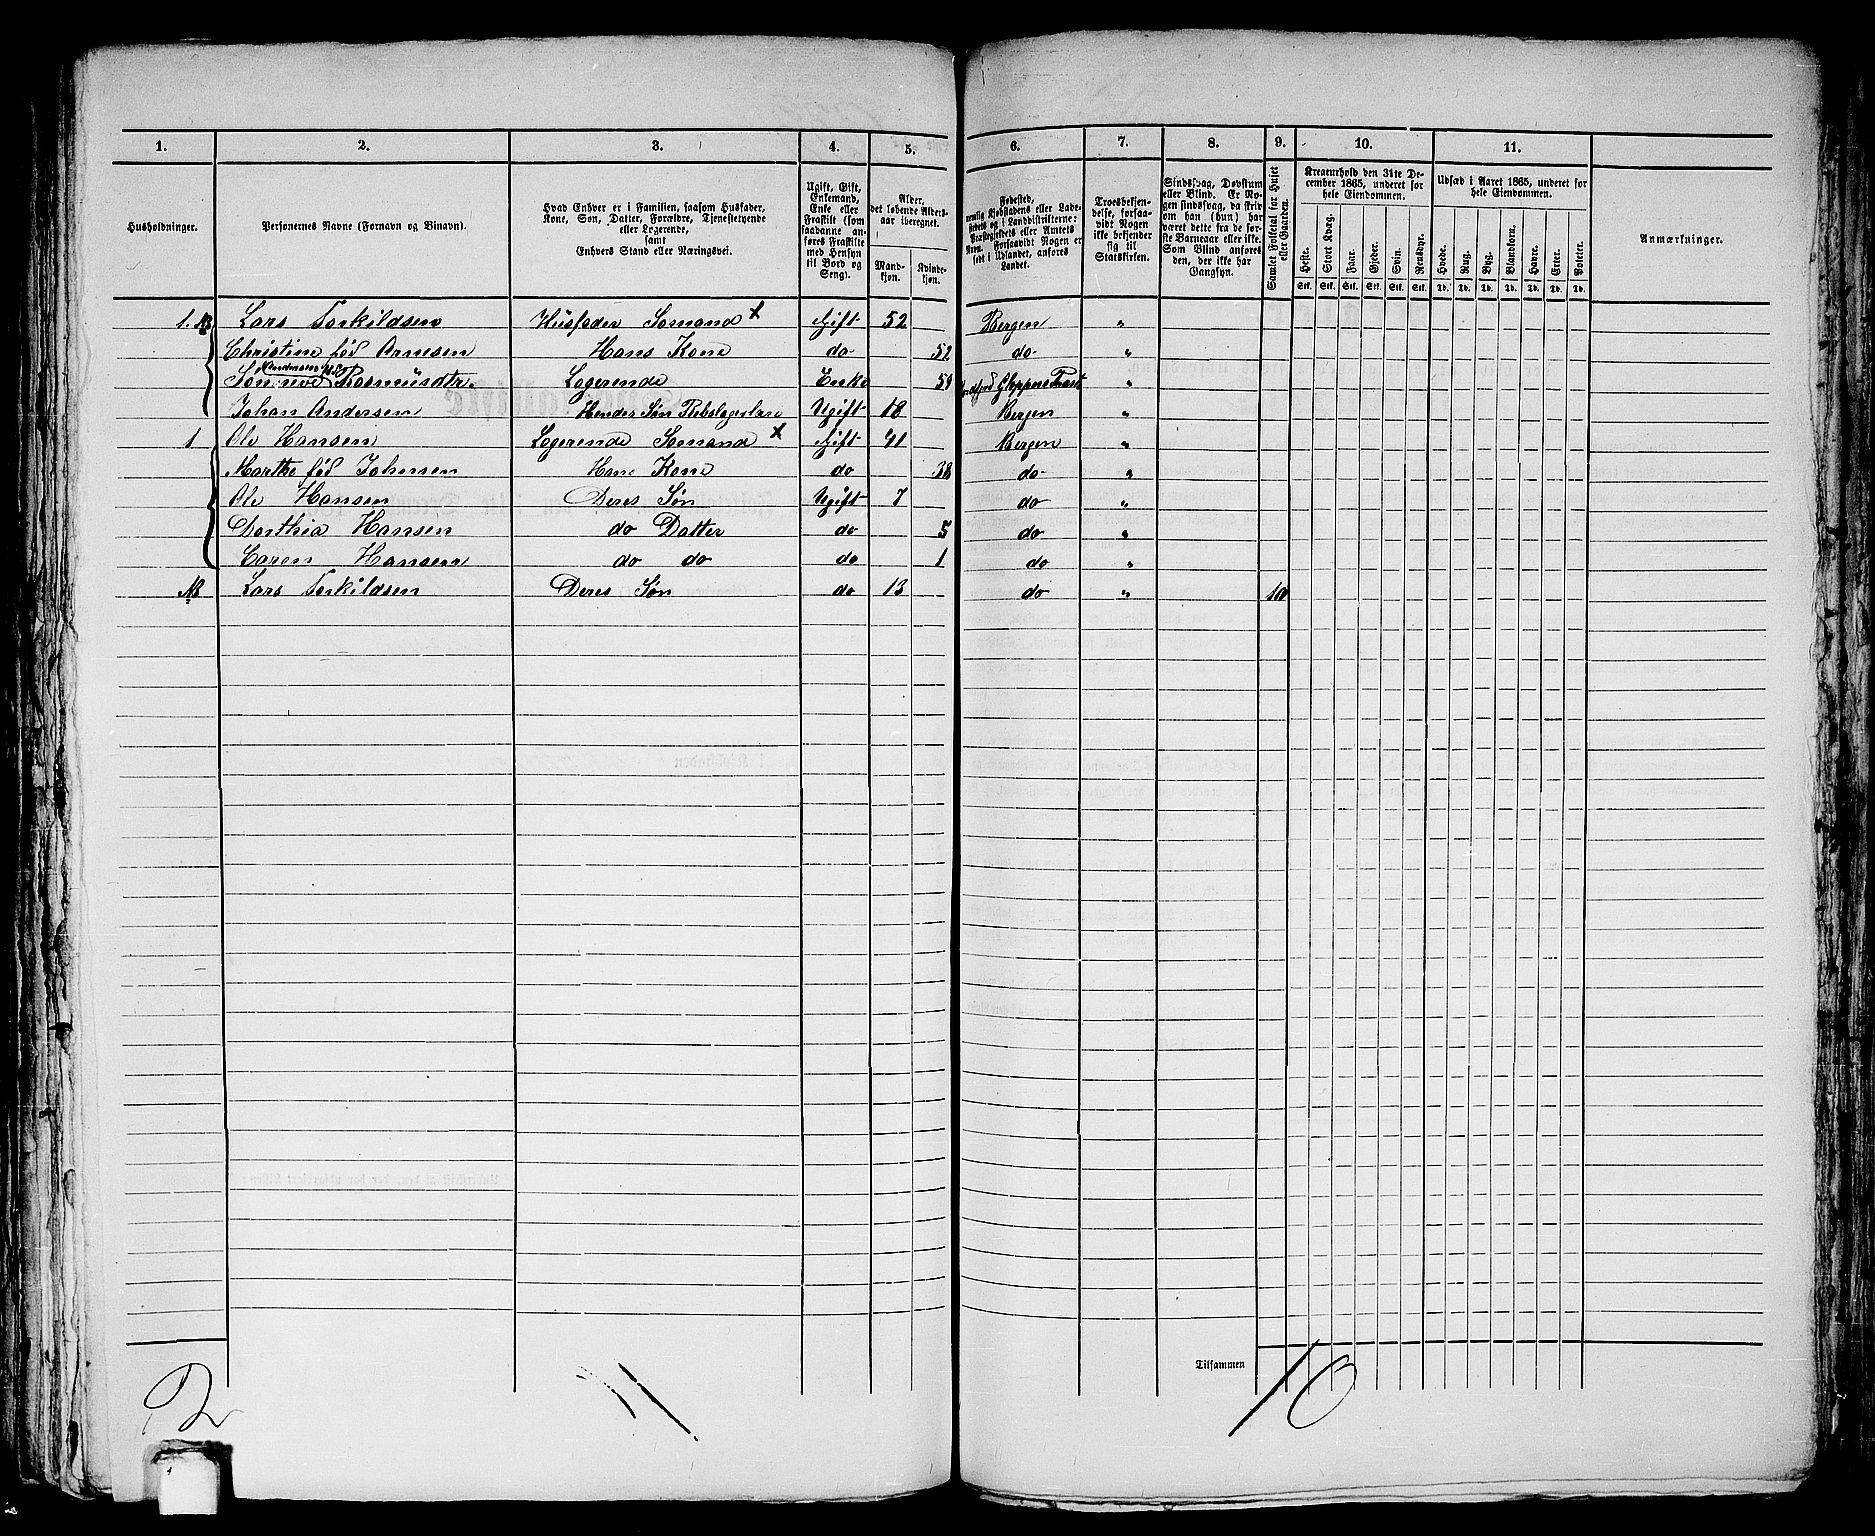 1. 2. 3. 4. 5. 6. 7. 8. 9. 10. 11.
Husholdninger.
Personernes Navne (Fornavn og Binavn).
Hvad Enhver er i Familien, saasom Husfader,
Kone, Søn, Datter, Forældre, Tjenestetyende
eller Logerende,
samt
Enhvers Stand eller Næringsvei.
Ugift, Gift,
Enkemand,
Enke eller
Fraskilt (som
saadanne an-
føres Fraskilte
med Hensyn
til Bord og
Seng).
Alder,
det løbende Alders-
aar iberegnet.
Mand-
kjøn.
Kvinde-
kjøn.
Fødested,
nemlig Kjøbstadens eller Lade-
stedets og i Landdistrikterne:
Præstegjeldets eller Amtets
Navn. Forsaavidt Nogen er
født i Udlandet, anføres
Landet.
Troesbekjen-
delse, forsaa-
vidt Nogen
ikke bekjender
sig til
Statskirken.
Sindssvag, Døvstum
eller Blind. Er No-
gen sindssvag, da skriv
om han (hun) har
været dette fra de før-
ste Barneaar eller ikke.
Som Blind anføres
den, der ikke har
Gangsyn.
Samlet Folketal for Huset
eller Gaarden.
Kreaturhold den 31te De-
cember 1865, underet for
hele Eiendommen.
Heste. Stort Kvæg. Faar. Gjeder. Svin. Rensdyr.
Stk. Stk. Stk. Stk. Stk. Stk.
Udsæd i Aaret 1865, underet for
hele Eiendommen.
Hvede. Rug. Byg. Blandkorn. Havre. Erter. Poteter.
Td. Td. Td. Td. Td. Td. Td.
Anmærkninger.
1. NB Lars Torkildsen Husfader Sømand x Gift 52 Bergen "
Christine fød Arnesen Hans Kone do 52 do "
Andersen
Sønneve Rasmusdtr. Logerende Enke Nordfjord Gloppens Præst "
Johan Andersen Hendes Søn Rebslagerlære Ugift 18 Bergen "
1 Ole Hansen Logerende Sømand x Gift 41 Bergen "
Marthe fød Johnsen Hans Kone do 38 do "
Ole Hansen Deres Søn Ugift 7 do "
Dorthia Hansen do Datter do 5 do "
Caren Hansen do do do 1 do "
NB Lars Torkildsen Deres Søn do 13 do " 10
Tilsammen
2
10